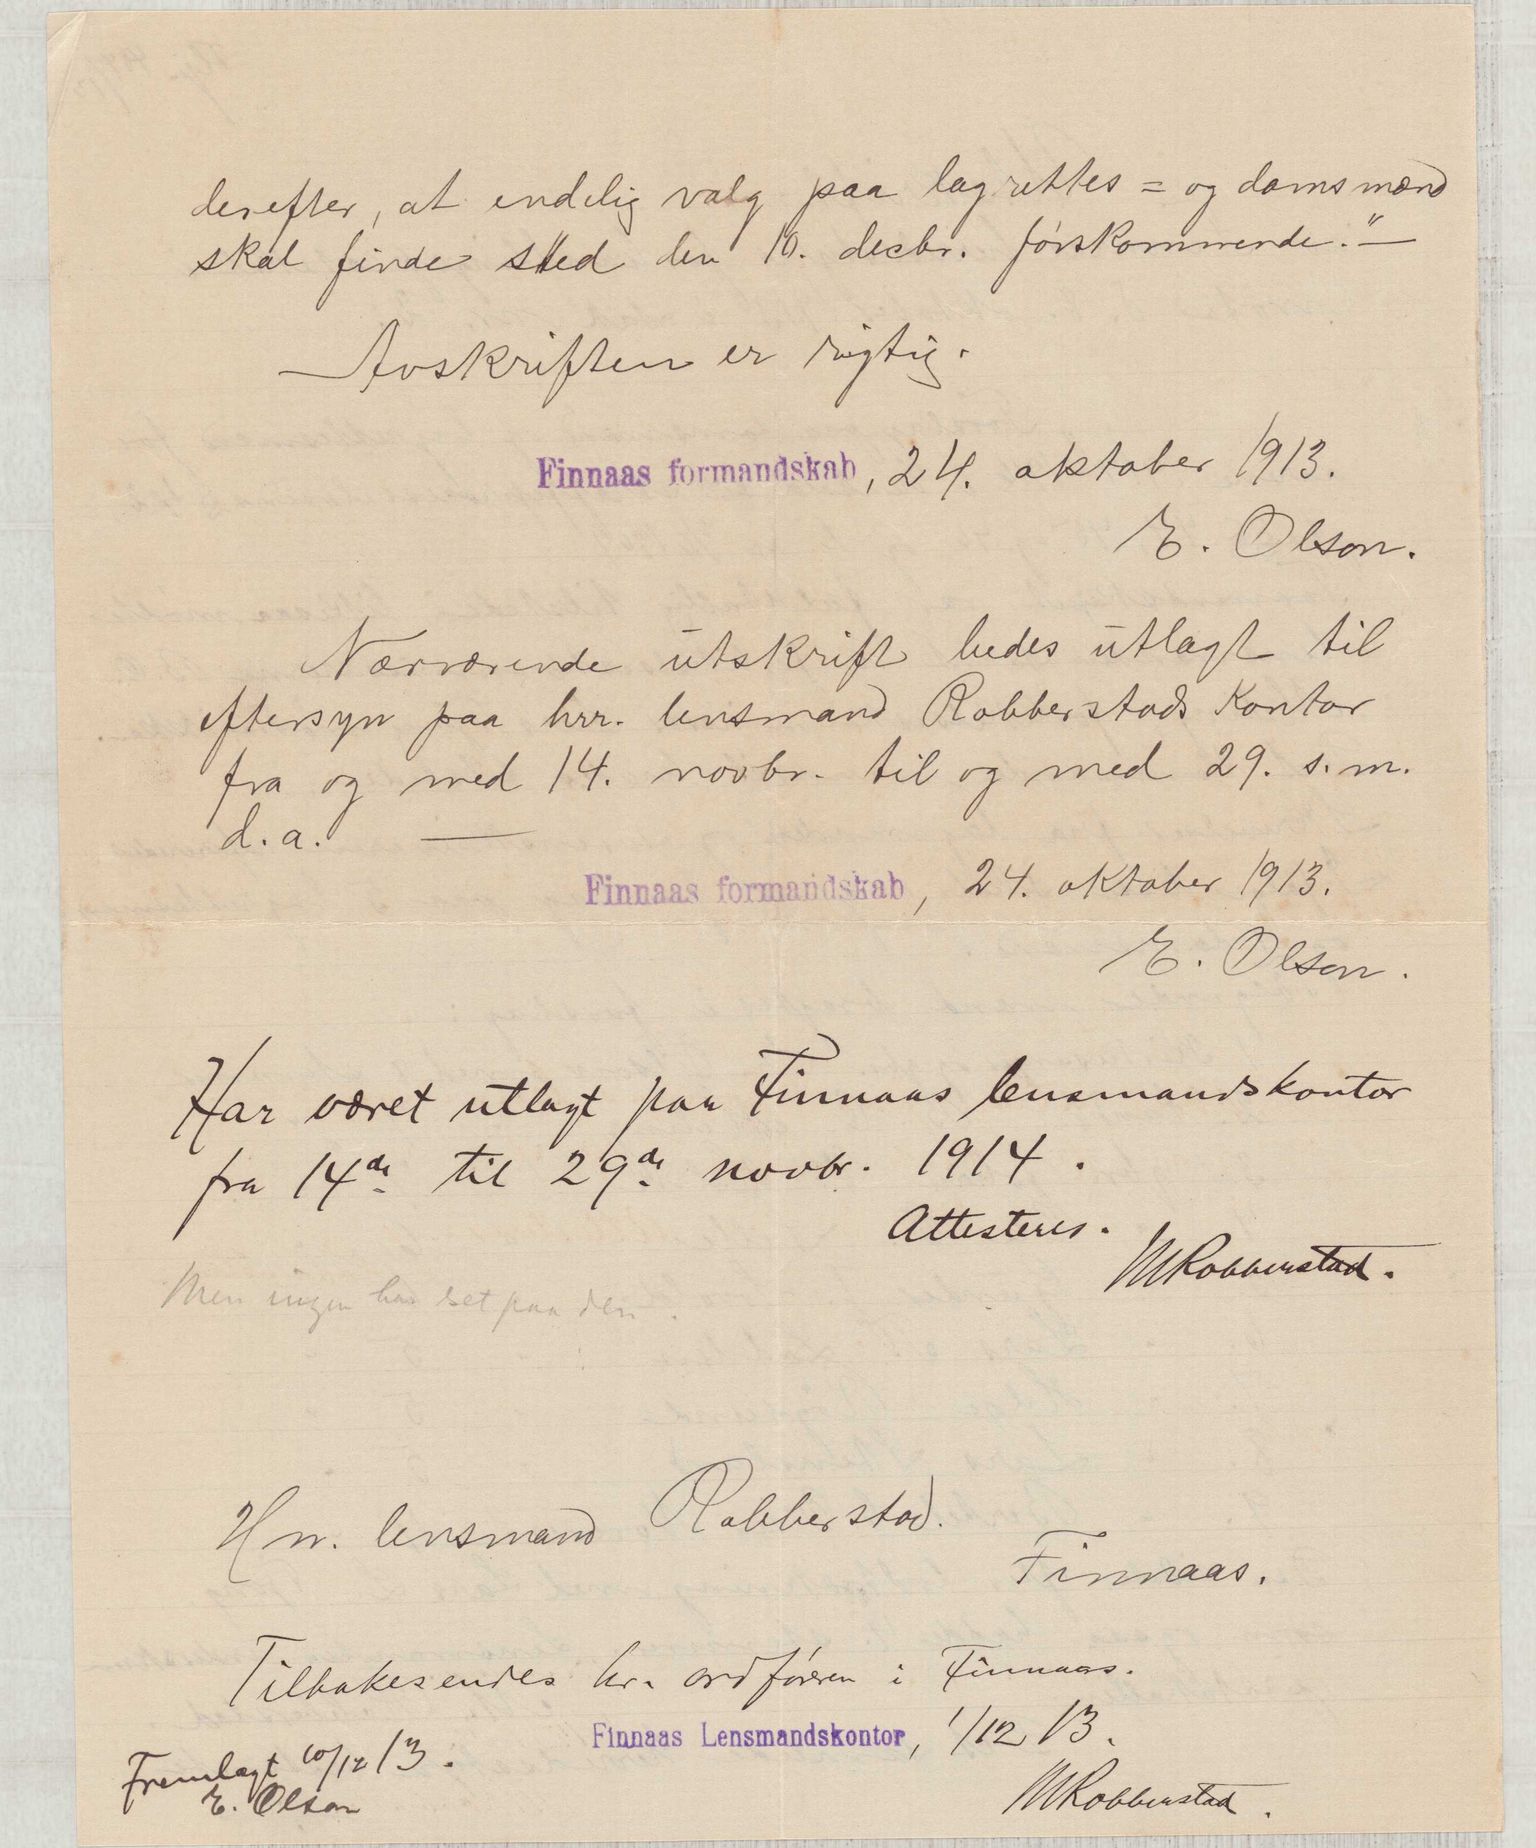 derefter, at endelig valg paa lagrettes= og domsmænd
skal finde sted den 10. decbr. førskommende."—
Avskriften er rigtig.
Finnaas formandskab, 24. oktober 1913.
E. Olson.
Nærværende utskrift bedes utlagt til
eftersyn paa hrr. lensmand Robberstads kontor
fra og med 14. novbr. til og med 29. s.m.
d.a. —
Finnaas formandskab, 24. oktober 1913.
E. Olson.
Har været utlagt paa Finnaas lensmandskontor
fra 14de til 29de novbr. 1914.
Attesteres.
MRobberstad.
Men ingen har set paa den.
Hrr. lensmand Robberstad.
Finnaas.
Tilbakesendes hr. ordføreren i Finnaas.
Finnaas Lensmandskontor, 1/12 13.
MRobberstad.
Fremlagt 10/12 13.
E. Olson